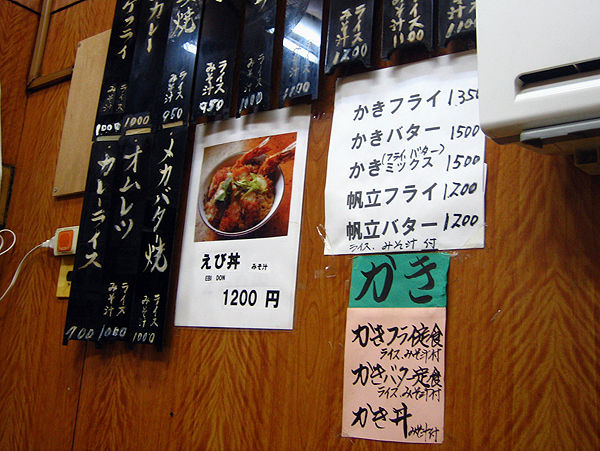 カレー
ライス
みそ汁
1000
1000
焼
ライス
みそ汁
950
ライス
みそ汁
950
ライス
みそ汁
1000
ライス
みそ汁
1000
みそ汁
1200
みそ汁
1100
みそ汁
1000
カレーライス
みそ汁
700
オムレツ
ライス
みそ汁
1000
メカバタ焼
ライス
みそ汁
1000
えび丼 みそ汁
EBI DON
1200 円
かきフライ 1350
かきバター 1500
(フライ,バター)
かきミックス 1500
帆立フライ 1200
帆立バター 1200
ライス、みそ汁 付
かき
かきフライ定食
ライス、みそ汁付
かきバター定食
ライス、みそ汁付
かき丼 みそ汁付